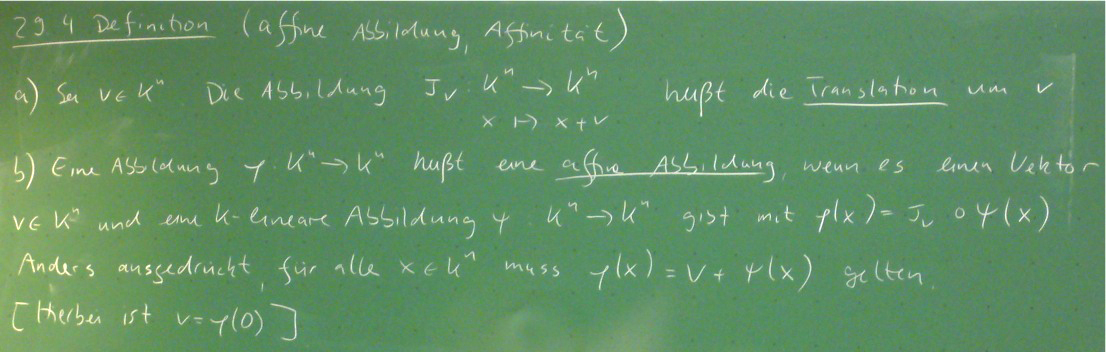 29.4 Definition (affine Abbildung, Affinität)
a) Sei v ∈ K^n. Die Abbildung J_v : K^n → K^n heißt die Translation um v
x ↦ x+v
b) Eine Abbildung φ: K^n → K^n heißt eine affine Abbildung, wenn es einen Vektor
v ∈ K^n und eine K-lineare Abbildung ψ : K^n → K^n gibt mit φ(x) = J_v ∘ ψ(x)
Anders ausgedrückt, für alle x ∈ K^n muss φ(x) = v + ψ(x) gelten.
[Hierbei ist v = φ(0)]